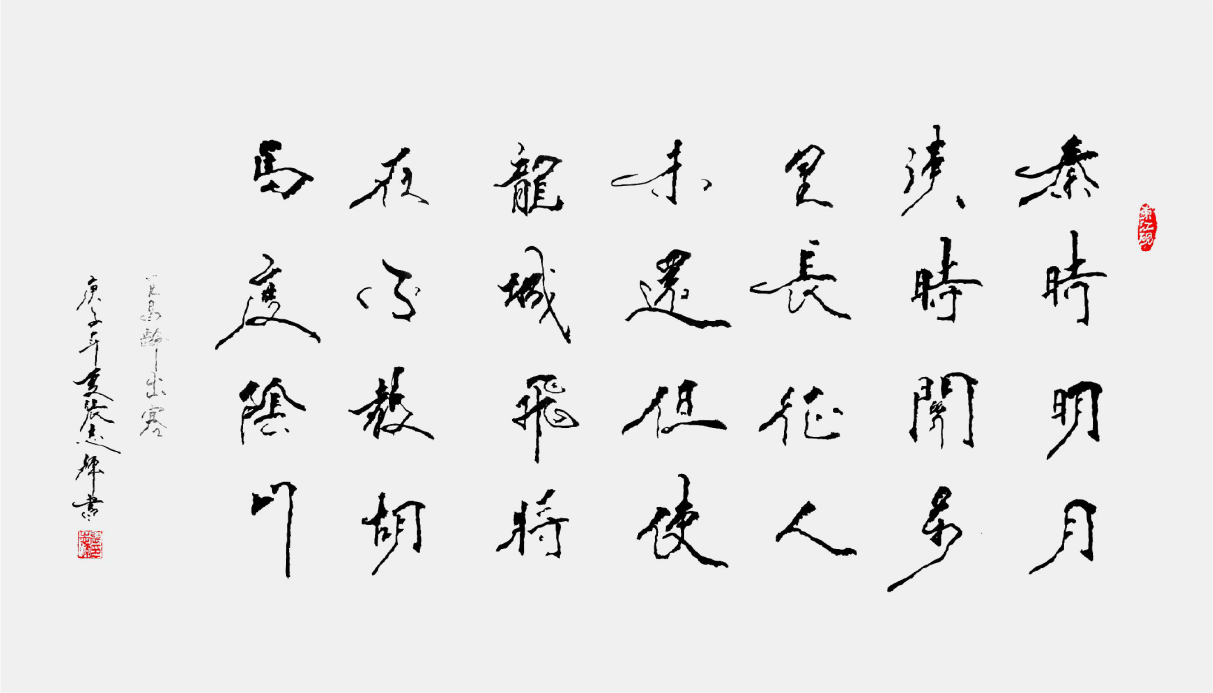 秦時明月
漢時關萬
里長征人
未還但使
龍城飛將
在不教胡
馬度陰山
王昌齡出塞
庚子年夏張志輝書